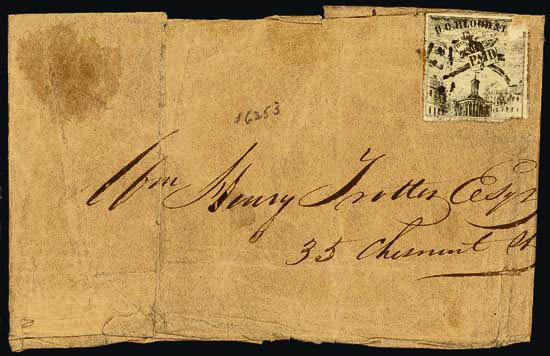 D.O. BLOOD & Co
PAID
16253
Wm Henry Trotter Esqr
35 Chesnut St